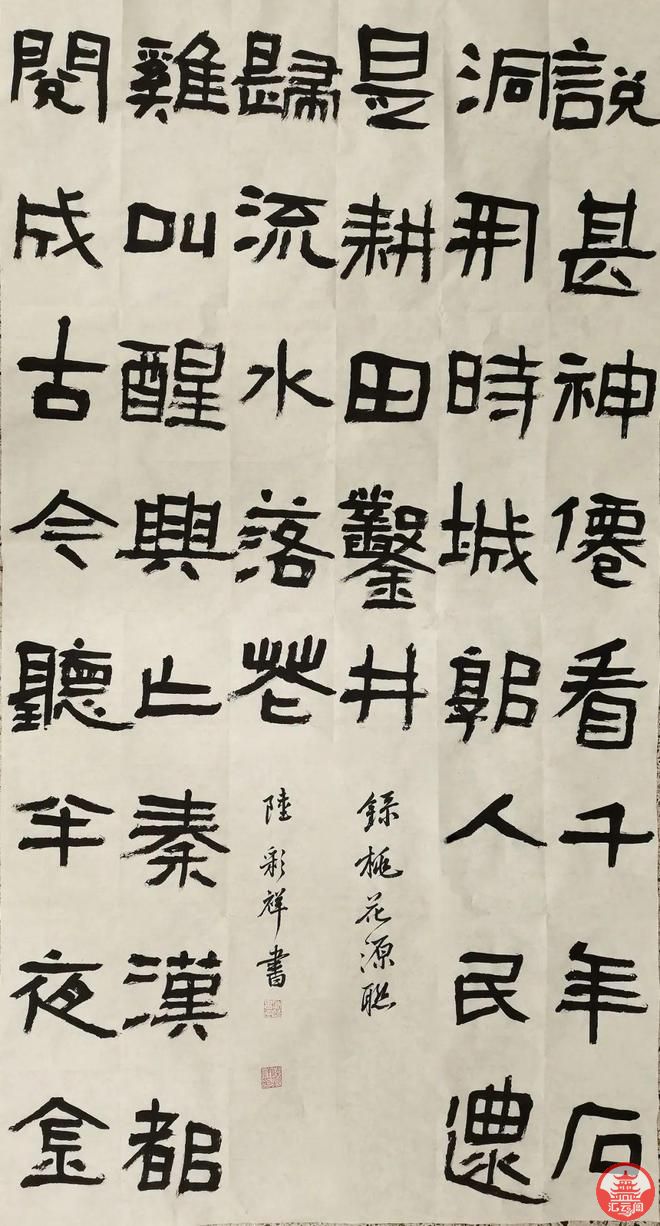 說甚神僊看千年石
洞開時城郭人民還
是耕田鑿井
閱成古今聽半夜金
雞叫醒興亡秦漢都
歸流水落花
錄桃花源聯
陸彩祥書
汇云阁